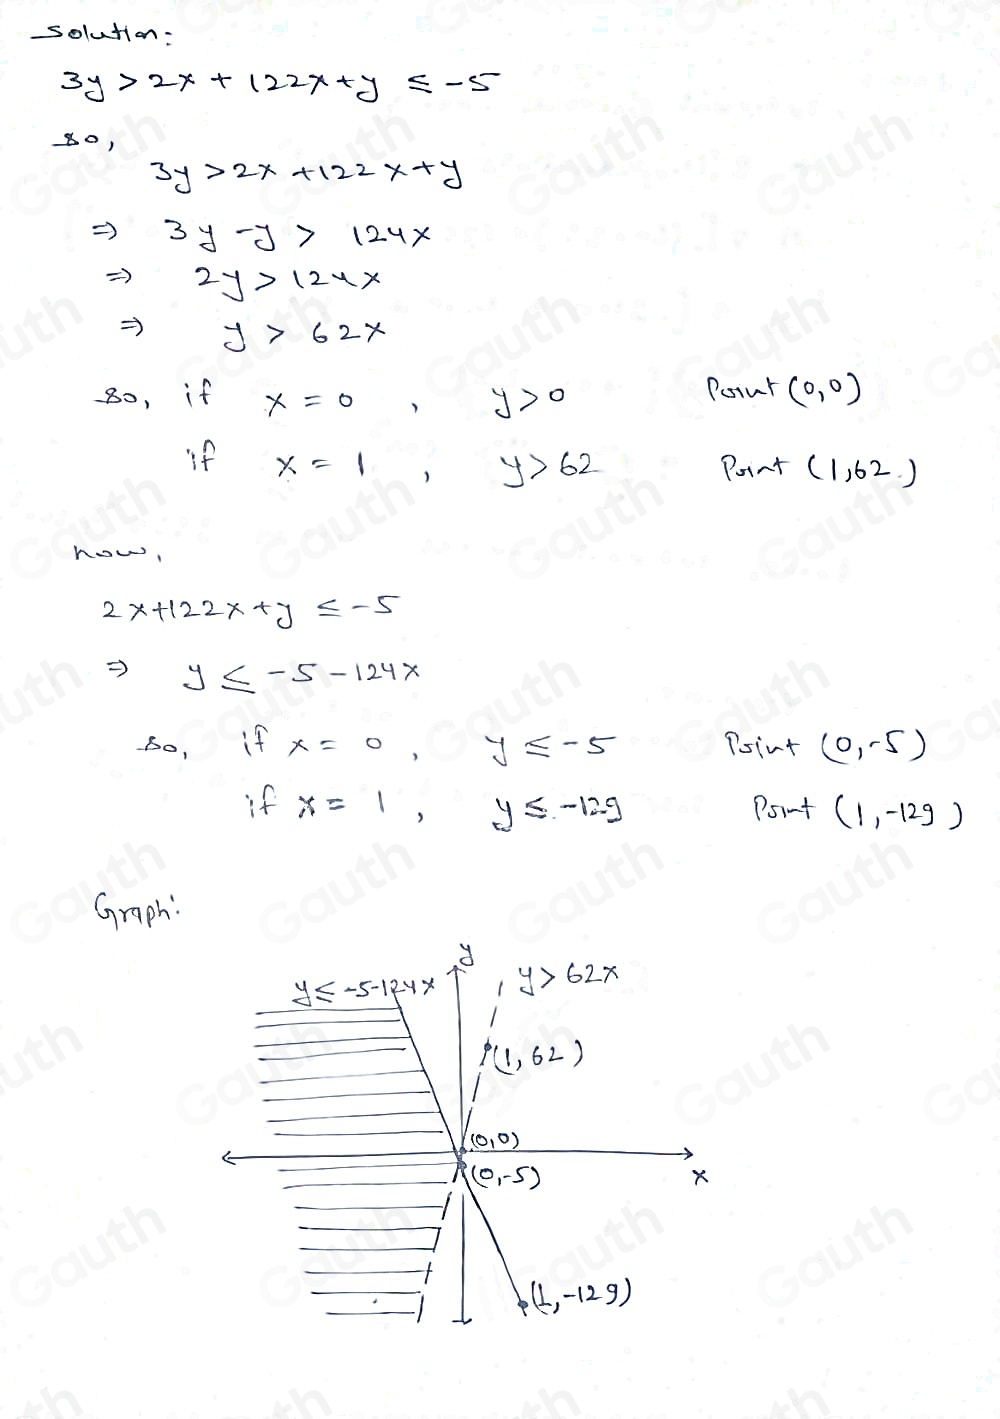 Solution:
3y > 2x + 122x+y ≤ -5
so,
3y > 2x +122x+y
⇒ 3y -y > 124x
⇒ 2y > 124x
⇒ y > 62x
so, if x = 0 , y>0 Point (0,0)
if x = 1 , y>62 Point (1,62)
now,
2x+122x+y ≤ -5
⇒ y ≤ -5-124x
so, if x = 0 , y ≤ -5 Point (0,-5)
if x = 1 , y ≤ -129 Point (1,-129)
Graph:
y
y≤ -5-124x
y> 62x
(1,62)
(0,0)
(0,-5)
x
(1,-129)
Gauth